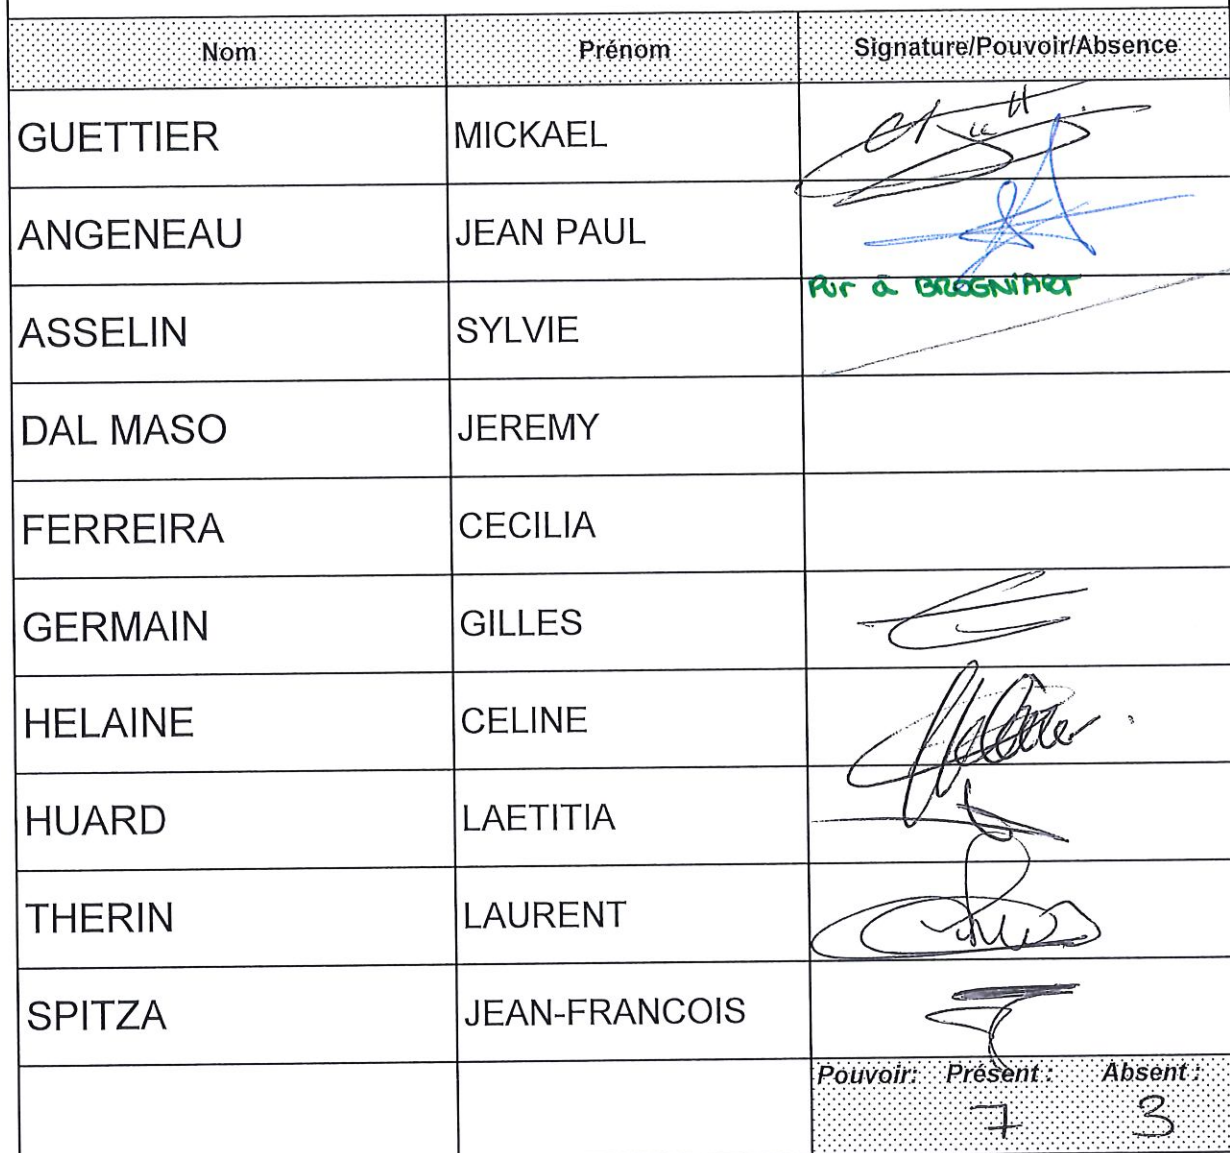 Nom Prénom Signature/Pouvoir/Absence
GUETTIER MICKAEL
ANGENEAU JEAN PAUL
Pvr à BROGNIART
ASSELIN SYLVIE
DAL MASO JEREMY
FERREIRA CECILIA
GERMAIN GILLES
HELAINE CELINE
HUARD LAETITIA
THERIN LAURENT
SPITZA JEAN-FRANCOIS
Pouvoir: Présent : Absent :
7 3